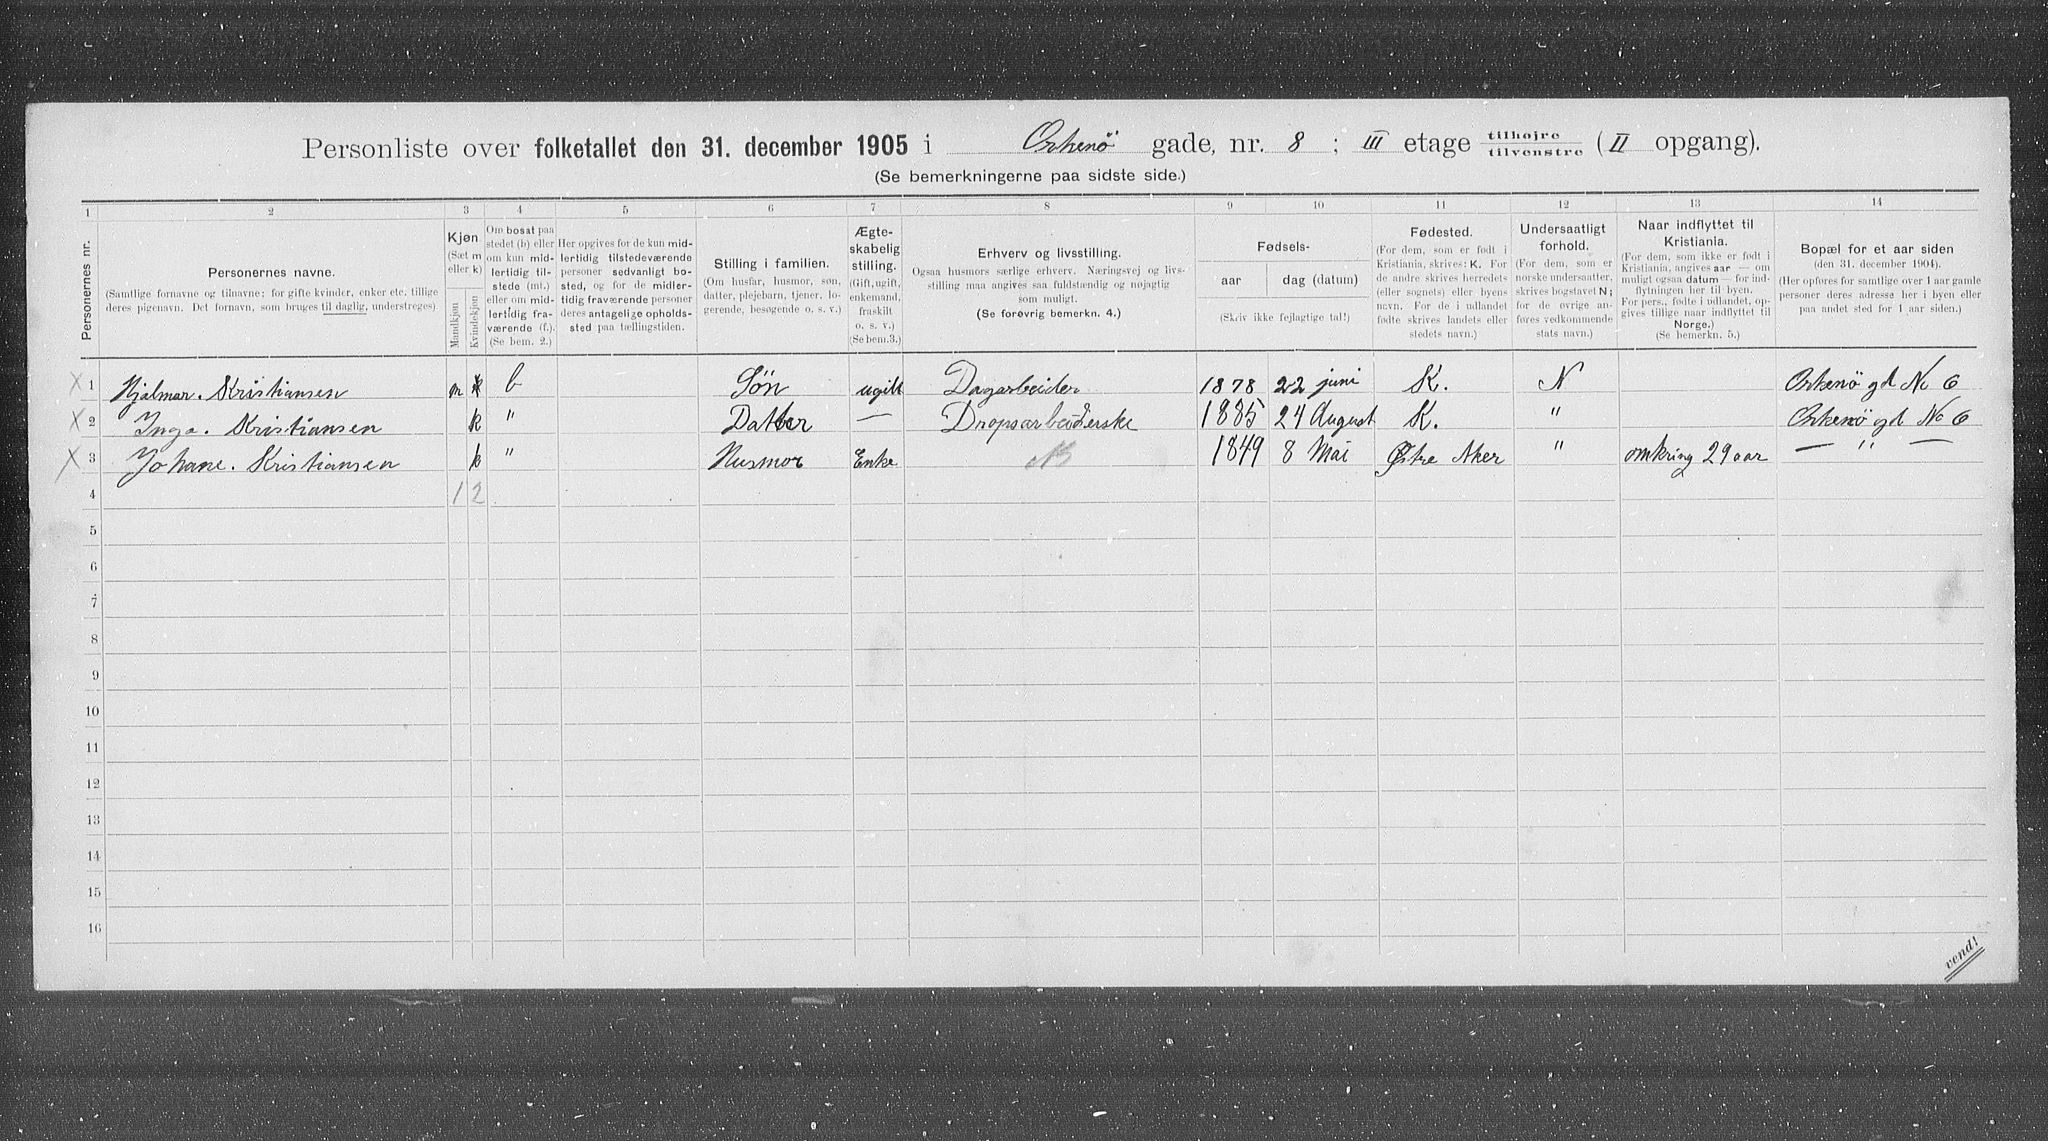 Personliste over folketallet den 31. december 1905 i Orkenö gade, nr. 8 ; III etage tilhøjre tilvenstre (II opgang).
(Se bemerkningerne paa sidste side.)
1 2 3 4 5 6 7 8 9 10 11 12 13 14
Personernes nr.
Personernes navne.
(Samtlige fornavne og tilnavne; for gifte kvinder, enker etc. tillige
deres pigenavn. Det fornavn, som bruges til daglig, understreges).
Kjøn
(Sæt m
eller k)
Mandkjøn
Kvindekjøn
Om bosat paa
stedet (b) eller
om kun mid-
lertidig til-
stede (mt.)
eller om mid-
lertidig fra-
værende (f.).
(Se bem. 2.)
Her opgives for de kun mid-
lertidig tilstedeværende
personer sedvanligt bo-
sted, og for de midler-
tidig fraværende personer
deres antagelige opholds-
sted paa tællingstiden.
Stilling i familien.
(Om husfar, husmor, søn,
datter, plejebarn, tjener, lo-
gerende, besøgende o. s. v.)
Ægte-
skabelig
stilling.
(Gift, ugift,
enkemand,
fraskilt
o. s. v.)
(Se bem.3.)
Erhverv og livsstilling.
Ogsaa husmors særlige erhverv. Næringsvej og livs-
stilling maa angives saa fuldstændig og nøjagtig
som muligt.
(Se forøvrig bemerkn. 4.)
Fødsels-
aar
dag (datum)
(Skriv ikke fejlagtige tal!)
Fødested.
(For dem, som er født i
Kristiania, skrives: K. For
de andre skrives herredets
(eller sognets) eller byens
navn. For de i udlandet
fødte skrives landets eller
stedets navn.)
Undersaatligt
forhold.
(For dem, som er
norske undersaatter,
skrives bogstavet N;
for de øvrige an-
føres vedkommende
stats navn.)
Naar indflyttet til
Kristiania.
(For dem, som ikke er født i
Kristiania, angives aar — om
muligt ogsaa datum — for ind-
flytningen her til byen.
For pers., fødte i udlandet, op-
gives tillige naar indflyttet til
Norge.)
(Se bemerkn. 5.)
Bopæl for et aar siden
(den 31. december 1904).
(Her opføres for samtlige over 1 aar gamle
personer deres adresse her i byen eller
paa andet sted for 1 aar siden.)
X 1 Hjalmar. Kristiansen m b Søn ugift Dagarbeider 1878 22 juni K. N Orkenö gd No 6
X 2 Inga. Kristiansen k " Datter — Dropsarbeiderske 1885 24 August K. " Orkenö gd No 6
X 3 Johane. Kristiansen k " Husmor Enke 1849 8 Mai Østre Aker " omkring 29 aar — " —
4 1 2
5
6
7
8
9
10
11
12
13
14
15
16
vend!